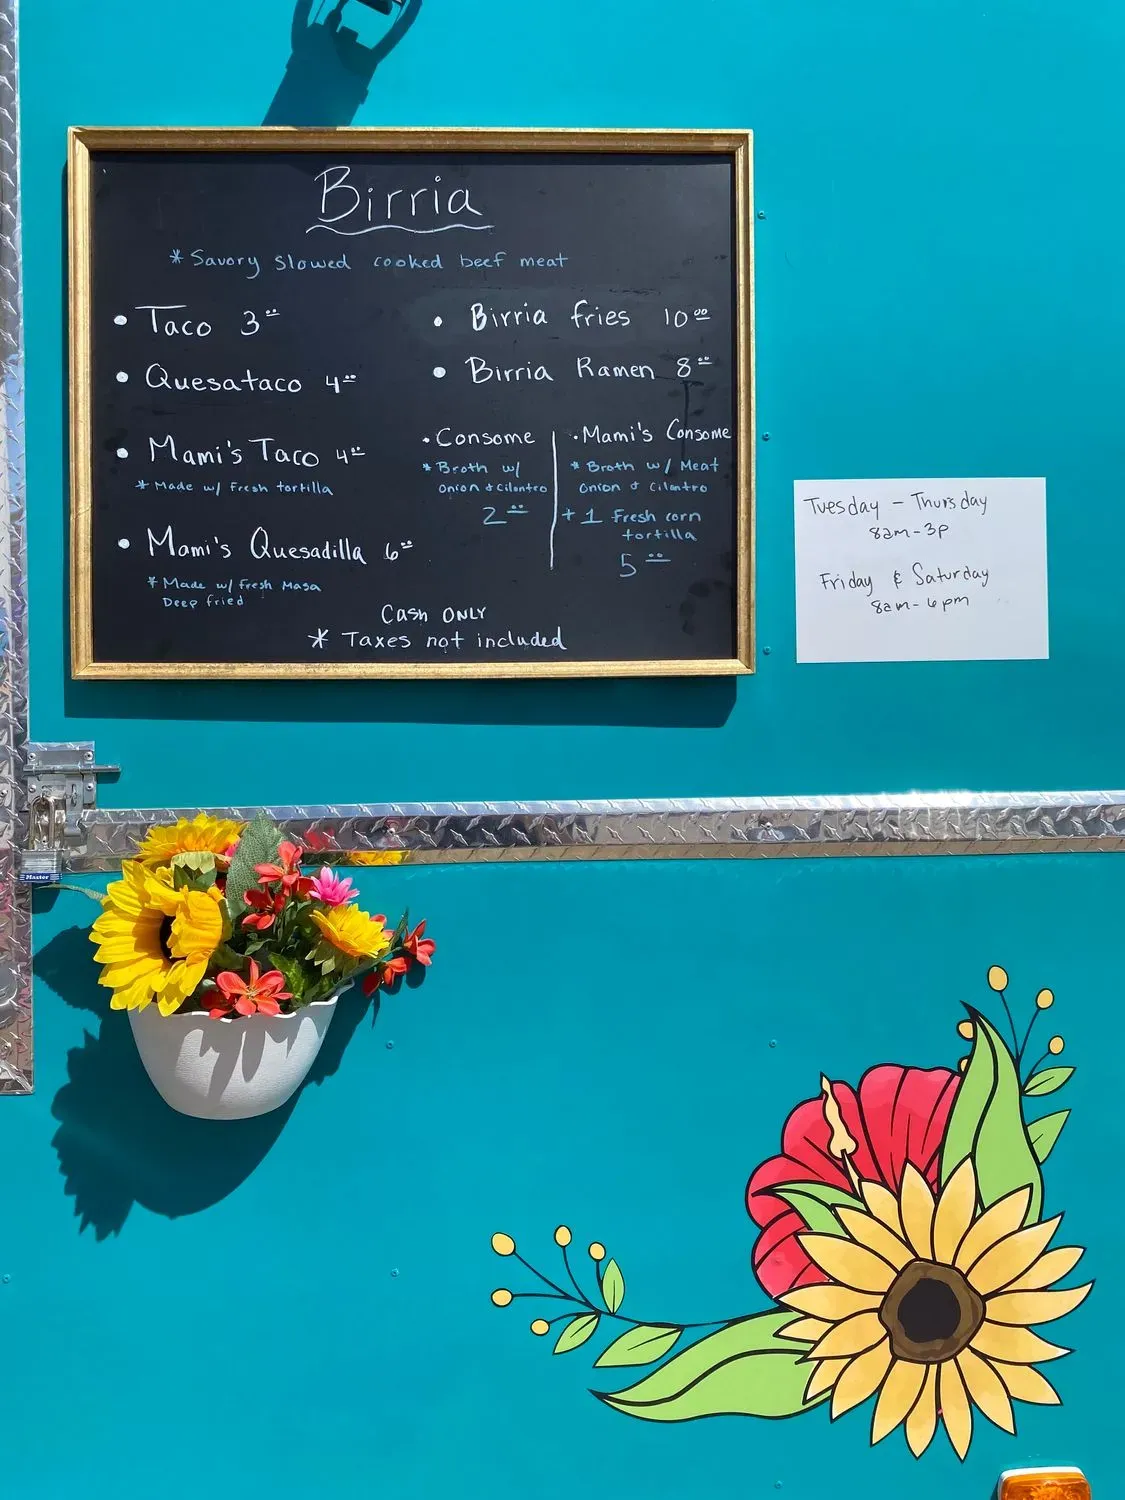 Birria
* Savory Slowed cooked beef meat
• Taco 3⁰⁰
• Quesataco 4⁰⁰
• Mami's Taco 4⁰⁰
* Made w/ Fresh tortilla
• Mami's Quesadilla 6⁰⁰
* Made w/ Fresh Masa
Deep fried
• Birria fries 10⁰⁰
• Birria Ramen 8⁰⁰
• Consome
* Broth w/
Onion & Cilantro
2⁰⁰
• Mami's Consome
* Broth w/ Meat
Onion & Cilantro
+ 1 Fresh corn
tortilla
5⁰⁰
Cash ONLY
* Taxes not included
Tuesday - Thursday
8am - 3p
Friday & Saturday
8am - 6pm
Master